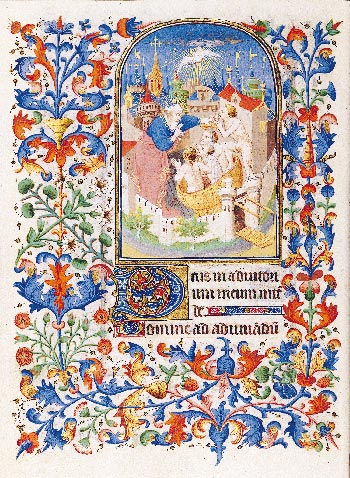 Deus in adiutori
um meum inte
de
Domine ad adiuuadu